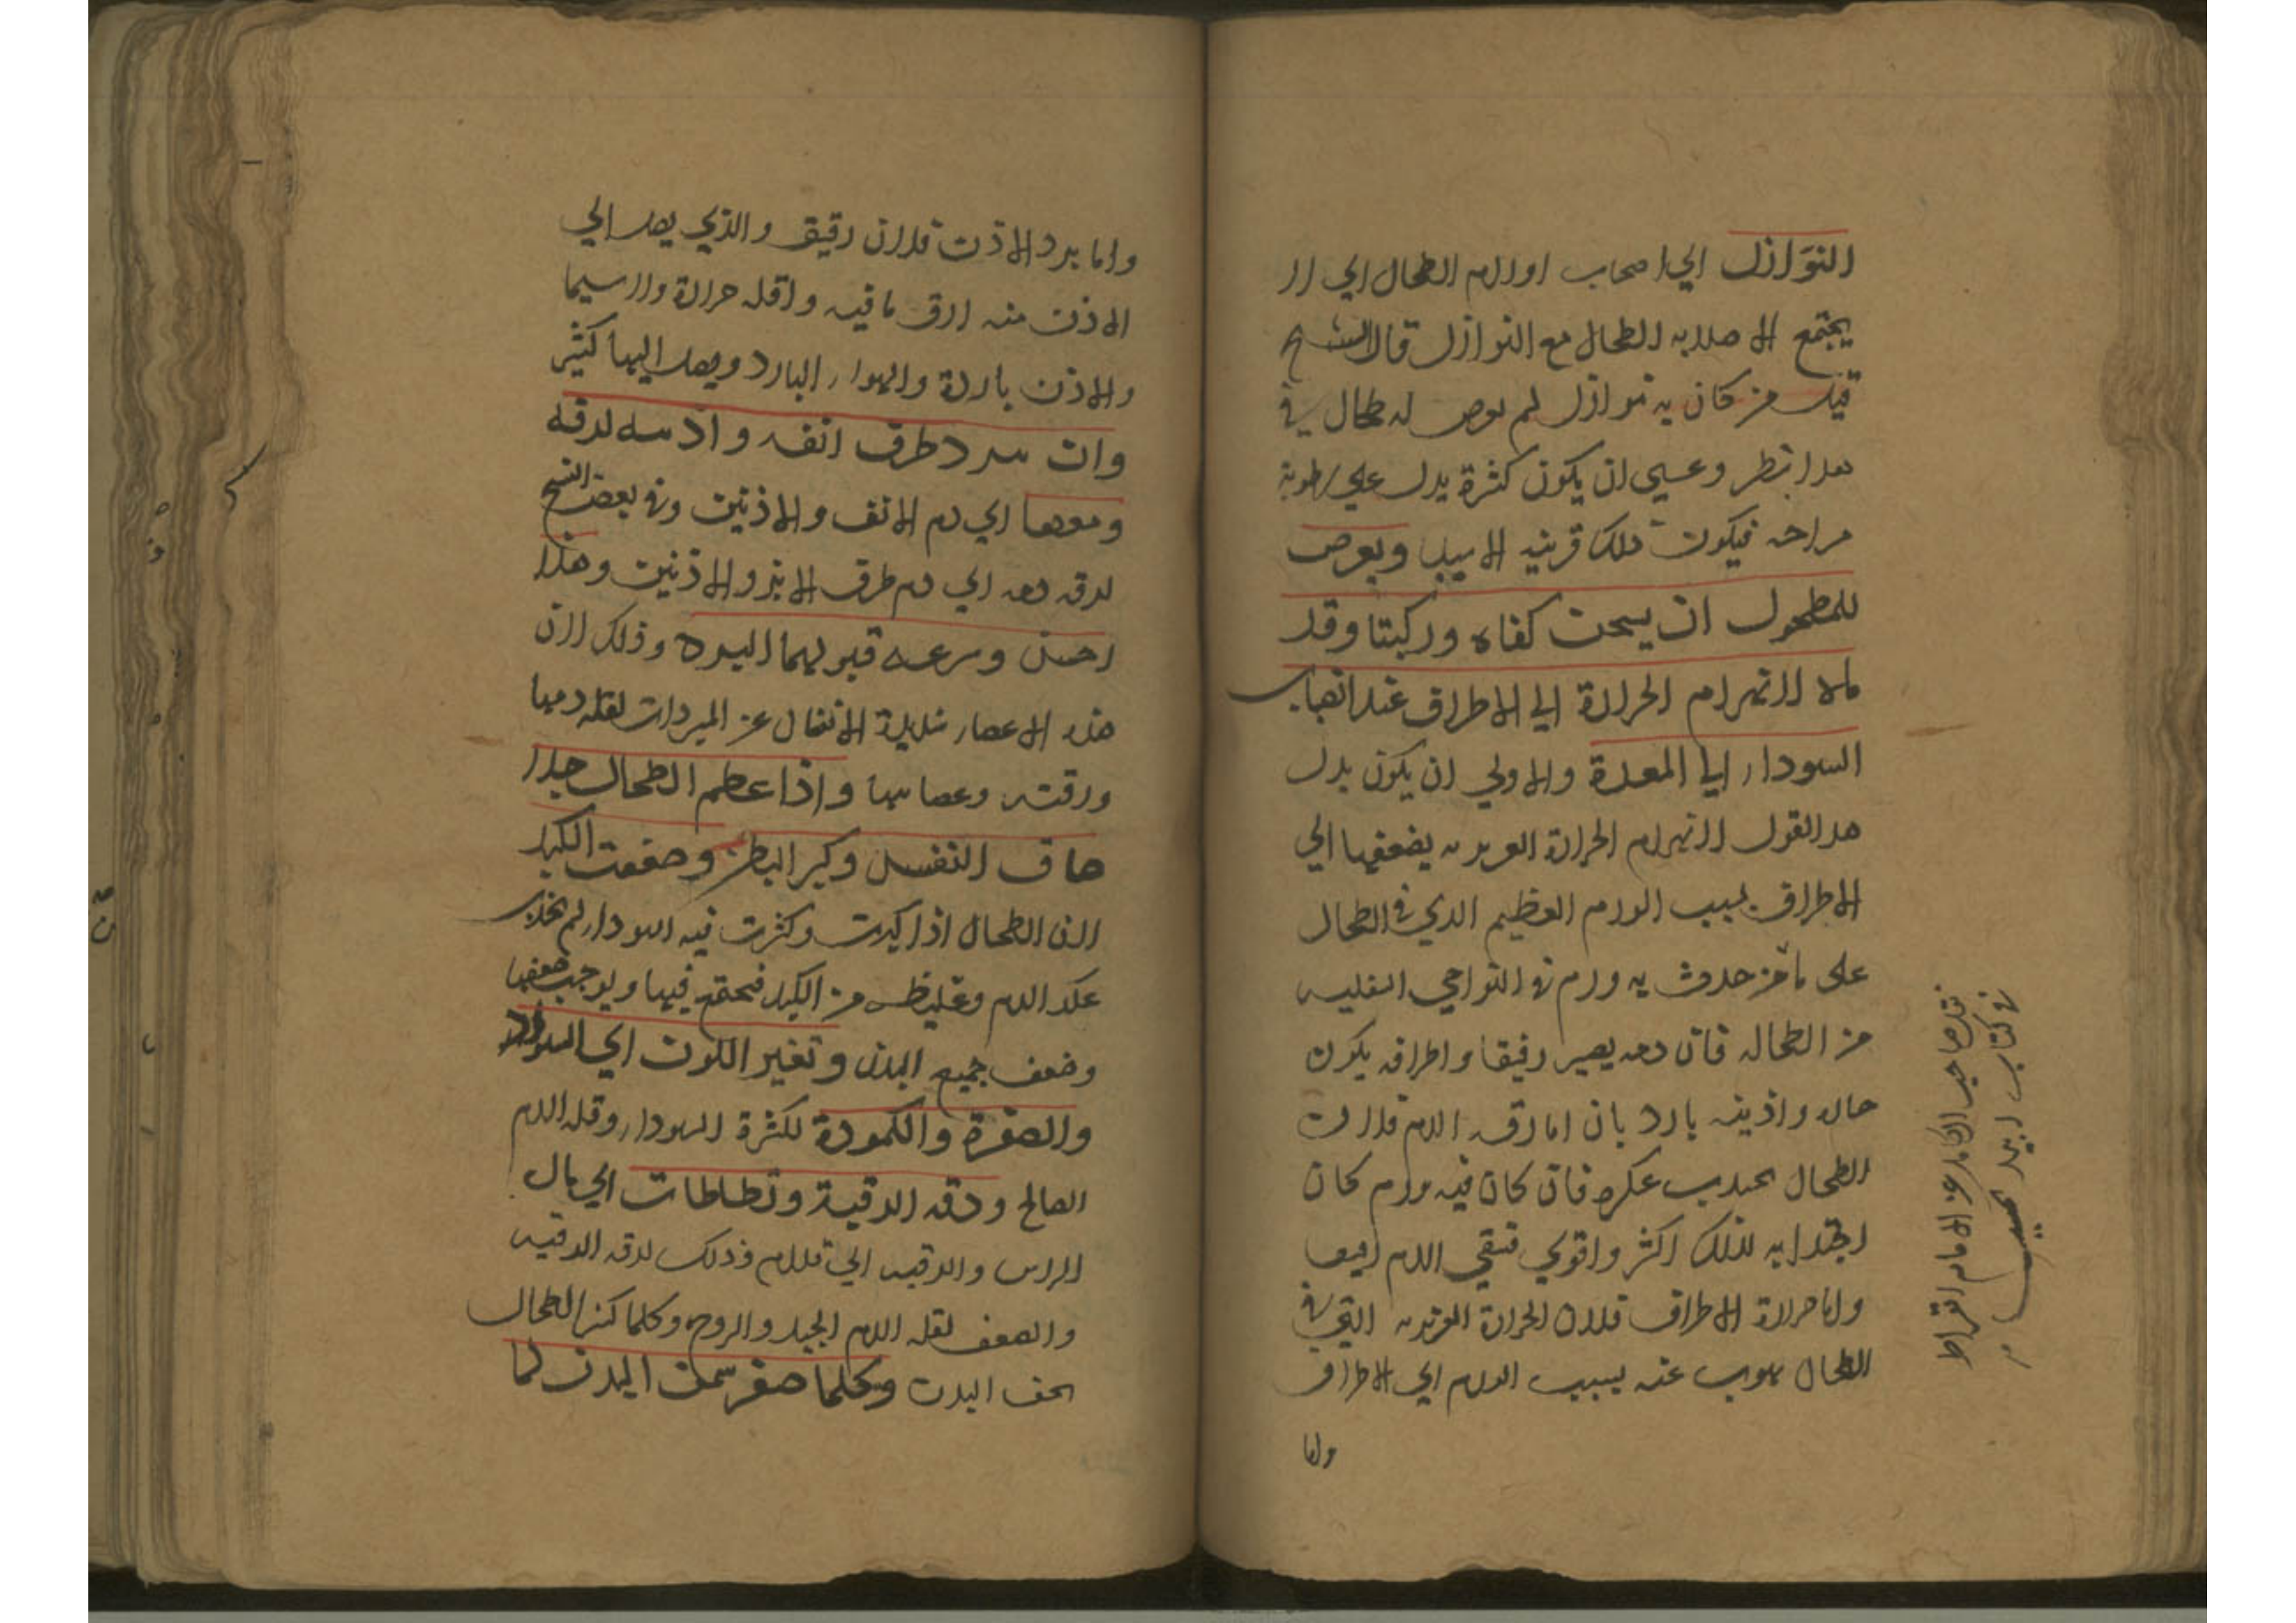 النوازل الي اصحاب اورام الطحال اي لا
يجتمع الا صلابه الطحال مع النوازل قال الشيخ
قيل من كان به نوازل لم يعرض له طحال في
هدا نظر وعسي ان يكون كثرة يدل علي رطوبة
مزاجه فيكون تلك قرينه الاسباب ويعرض
للمطحول ان يسخن كفاه وركبتا وقد
ماه لانهزام الحرارة الي الاطراف عند انصباب
السوداء الي المعدة والاولي ان يكون بدل
هدا القول لانهزام الحرارة الغريزيه بضعفها الي
الاطراف بسبب الورم العظيم الدي في الطحال
على ما من حدوث به ورم في النواحي السفليه
من الطحاله فان دمه يصير رقيقا واطرافه يكون
حاره واذينه بارد بان اما رقه الدم فلان
الطحال يجذب عكره فان كان فيه ورم كان
اجتدابه لذلك اكثر واقوي فبقي الدم رقيقا
واما حرارة الاطراف فلان الحرارة الغريزيه التي في
الطحال يهرب عنه بسبب الورم الي الاطراف
واما
نقل صاحب الكامل عن الامام ابقراط
في كتاب ابيديميا
واما برد الاذن فلان رقيق والذي يصل الي
الاذن منه ارق ما فيه واقله حرارة ولا سيما
والاذن باردة والهواء البارد ويصل اليها كثير
وان يبرد طرف انفه واذنيه لرقه
دمعها اي دم الانف والاذنين وفي بعض النسخ
لرقه دمه اي دم طرف الانف والاذنين وهذا
احسن وسرعه قبولهما البرد وذلك لان
هذه الاعضاء شديدة الانفعال عن المبردات لقله دمها
ورقته وعصابيها واذا عظم الطحال جدا
ضاق النفس وكبر البطن وضعفت الكبد
لان الطحال اذا كبرت وكثرت فيه السوداء لم يجذب
عكر الدم وغليظه من الكبد فيحتقن فيها ويوجب ضعفها
وضعف جميع البدن وتغير اللون الي السواد
والصفرة والكمودة لكثرة السوداء وقله الدم
الصالح ودقه الرقبة وتطاطات اي مال
الراس والرقبه الي قدام وذلك لرقه الرقبه
والضعف لقله الدم الجيد والروح وكلما كبر الطحال
نحف البدن وكلما صغر سمن البدن لما